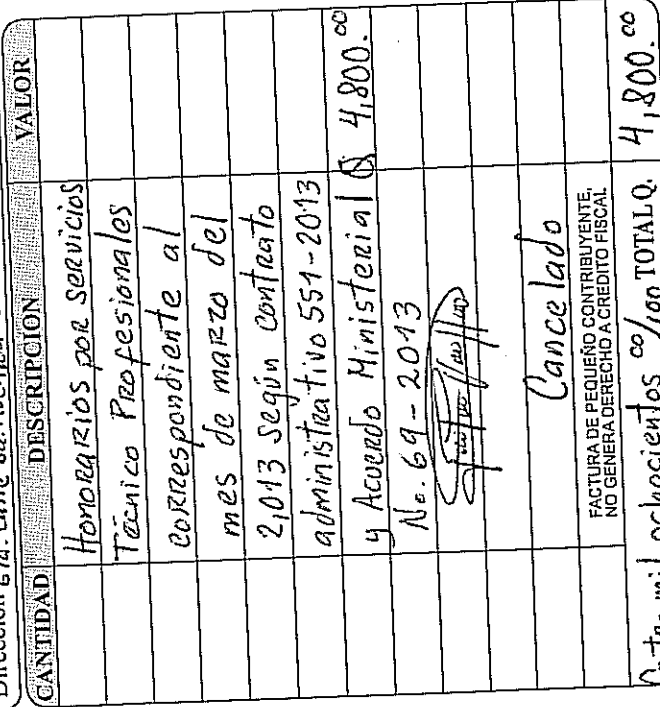 Dirección 6
CANTIDAD DESCRIPCION VALOR
Honorarios por servicios
Técnico Profesionales
correspondiente al
mes de marzo del
2,013 según contrato
administrativo 551-2013
y Acuerdo Ministerial Q 4,800.00
No. 69-2013
Cancelado
FACTURA DE PEQUEÑO CONTRIBUYENTE,
NO GENERA DERECHO A CREDITO FISCAL
mil ochocientos 00/100 TOTAL Q. 4,800.00